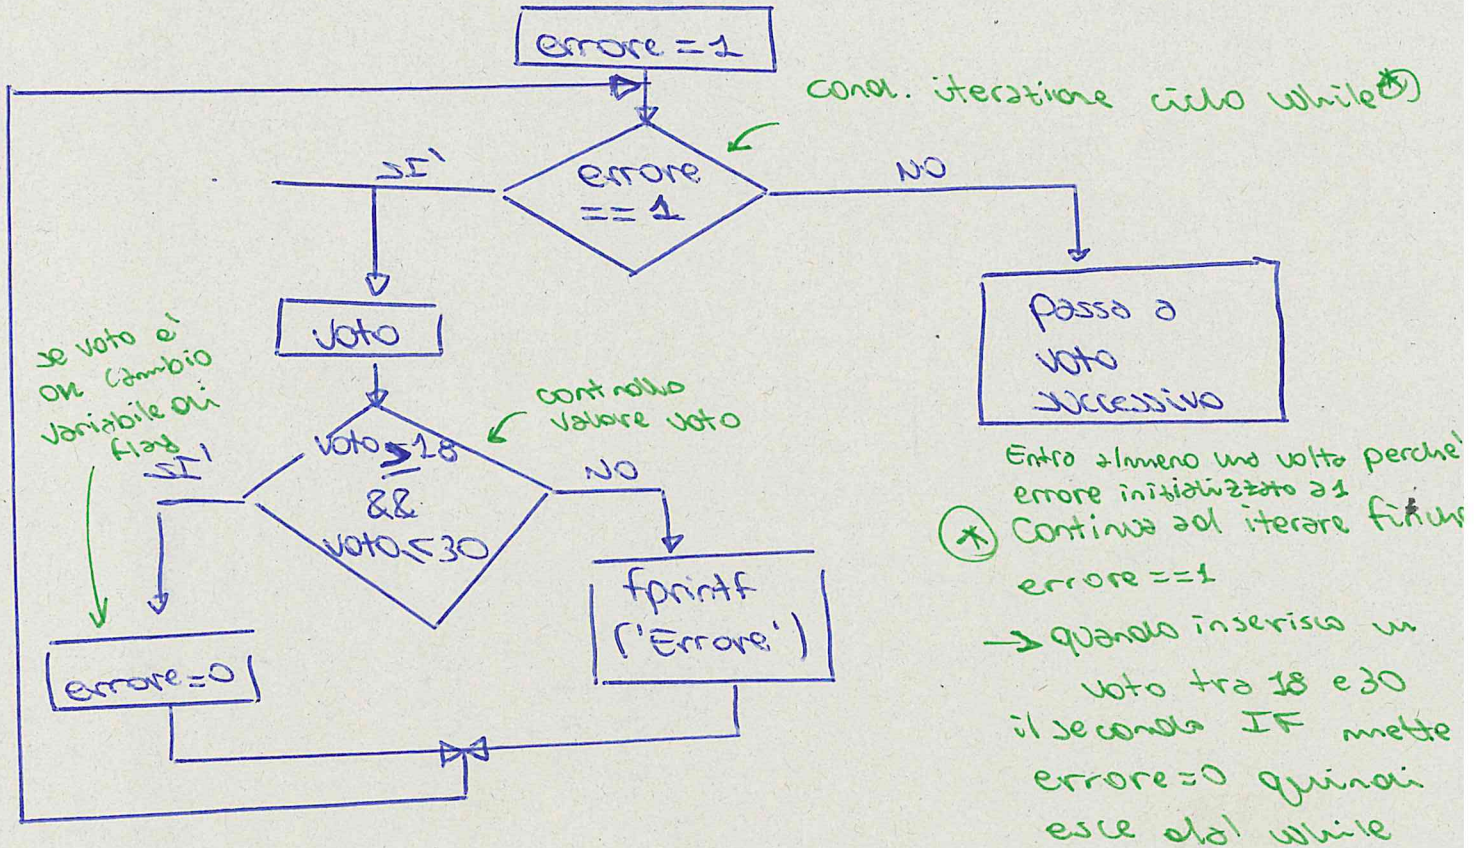 errore = 1
cond. iterazione ciclo while (*)
SI'
errore
== 1
NO
voto
passa a
voto
successivo
se voto è
ok cambio
variabile di
flag
controllo
valore voto
SI'
voto ≥ 18
&&
voto ≤ 30
NO
errore = 0
fprintf
('Errore')
Entra almeno una volta perchè
errore inizializzato a 1
(*) Continua ad iterare finchè
errore == 1
→ quando inserisco un
voto tra 18 e 30
il secondo IF mette
errore = 0 quindi
esce dal while